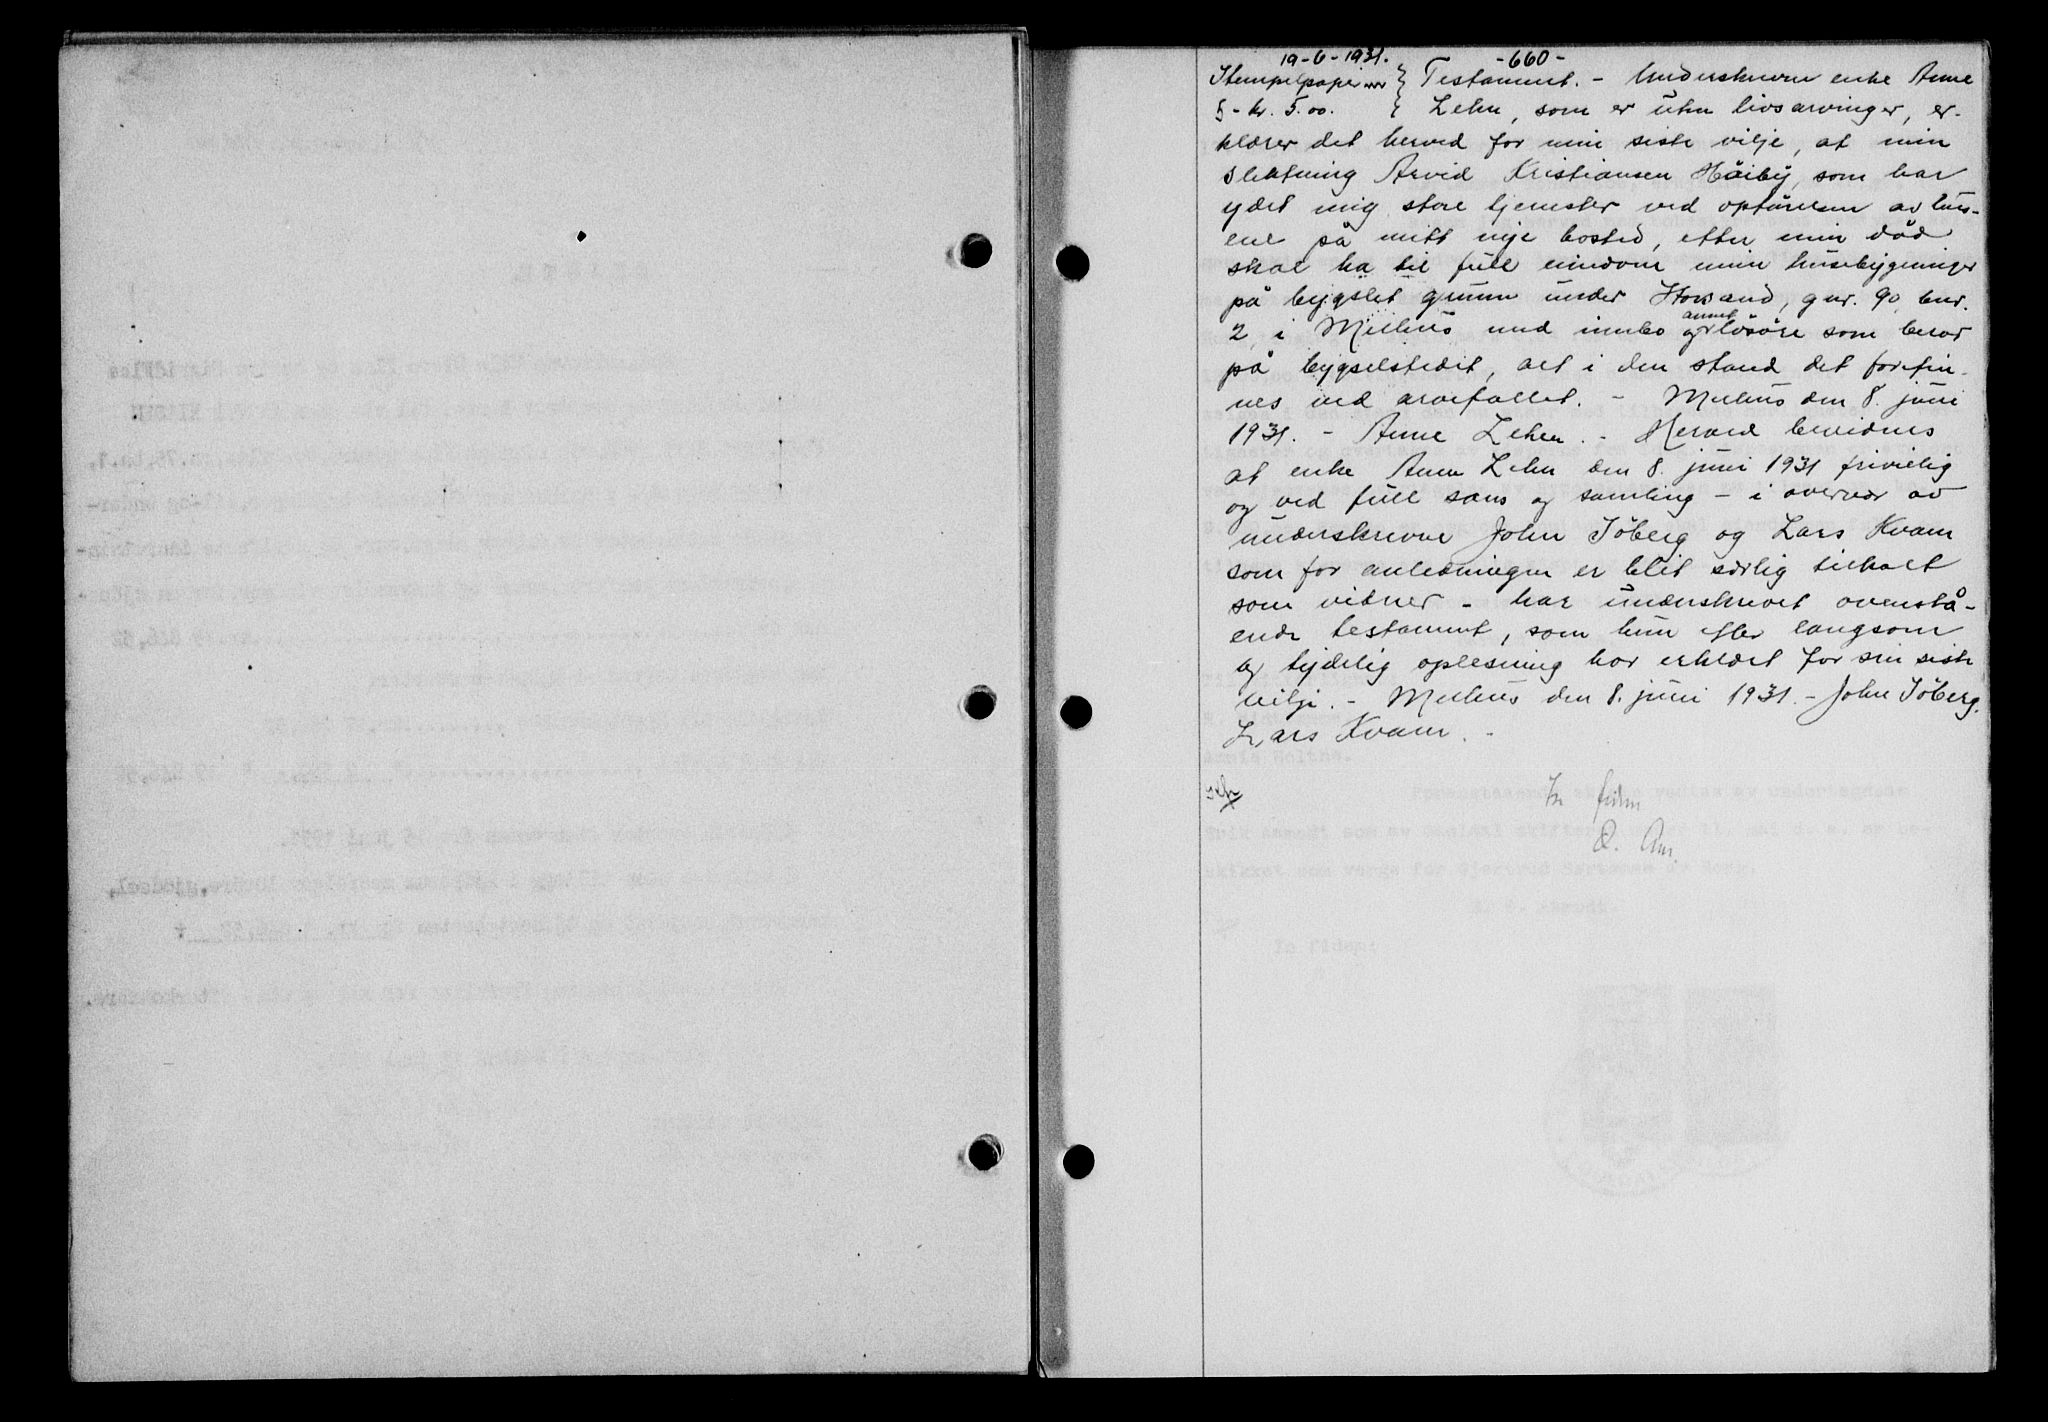 19-6-1931. -660-
Stempelpapir } Testament. - Underskrevne enke Anne
5 - kr. 5.00. } Lehn, som er uten livsarvinger, er-
klærer det herved for min siste vilje, at min
slektning Arvid Kristiansen Håiby, som har
ydet mig store tjenester ved optørelsen av hus-
ene på mitt nye bosted, etter min død
skal ha til full eiendom mine husebygninger
på bygslet grunn under Horsand, gnr. 90, bnr.
2, i Melhus med innbo og annet løsøre som beror
på bygselstedet, alt i den stand det forefin-
nes ved arvefallet. - Melhus den 8. juni
1931. - Anne Lehn. - Herved bevidnes
at enke Anne Lehn den 8. juni 1931 frivillig
og ved full sans og samling - i overvær av
underskrevne John Söberg og Lars Kvam
som for anledningen er blit særlig tilkalt
som vidner - har underskrevet ovenstå-
ende testament, som hun efter langsom
og tydelig oplesning har erklæret for sin siste
vilje. - Melhus den 8. juni 1931. - John Söberg.
Lars Kvam. -
In fidem